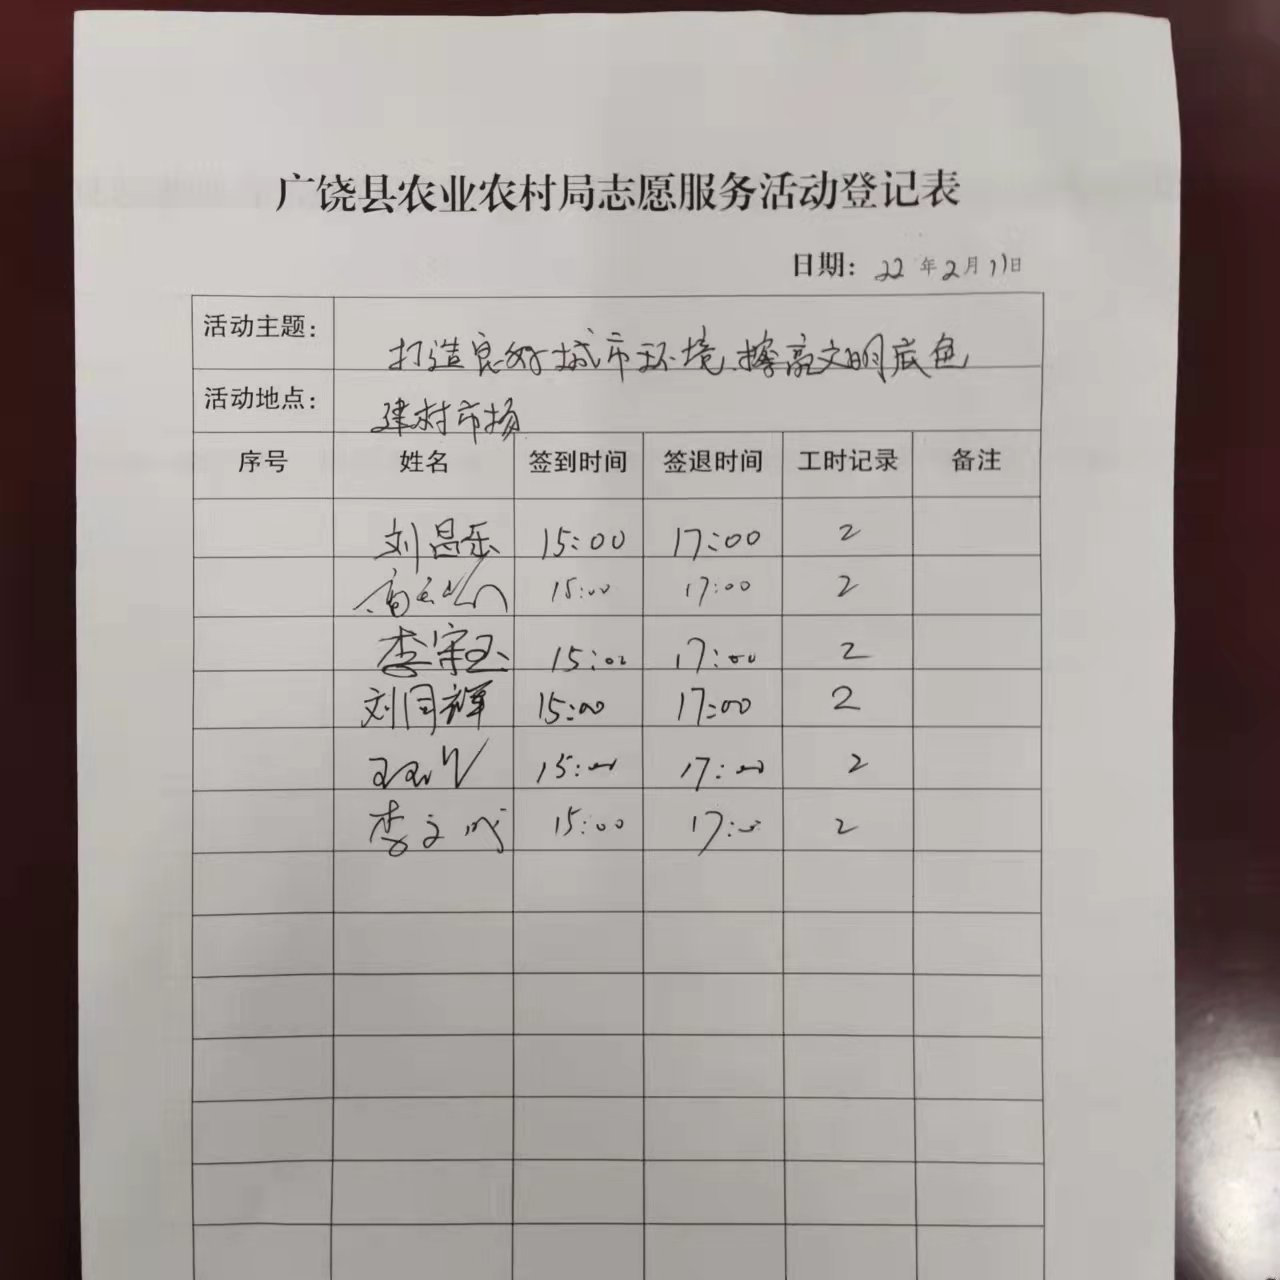 广饶县农业农村局志愿服务活动登记表
日期：22年2月11日
活动主题： 打造良好城市环境、擦亮文明底色
活动地点： 建材市场
序号 姓名 签到时间 签退时间 工时记录 备注
刘昌乐 15:00 17:00 2
15:00 17:00 2
李宗玉 15:00 17:00 2
刘同辉 15:00 17:00 2
15:00 17:00 2
李文成 15:00 17:00 2